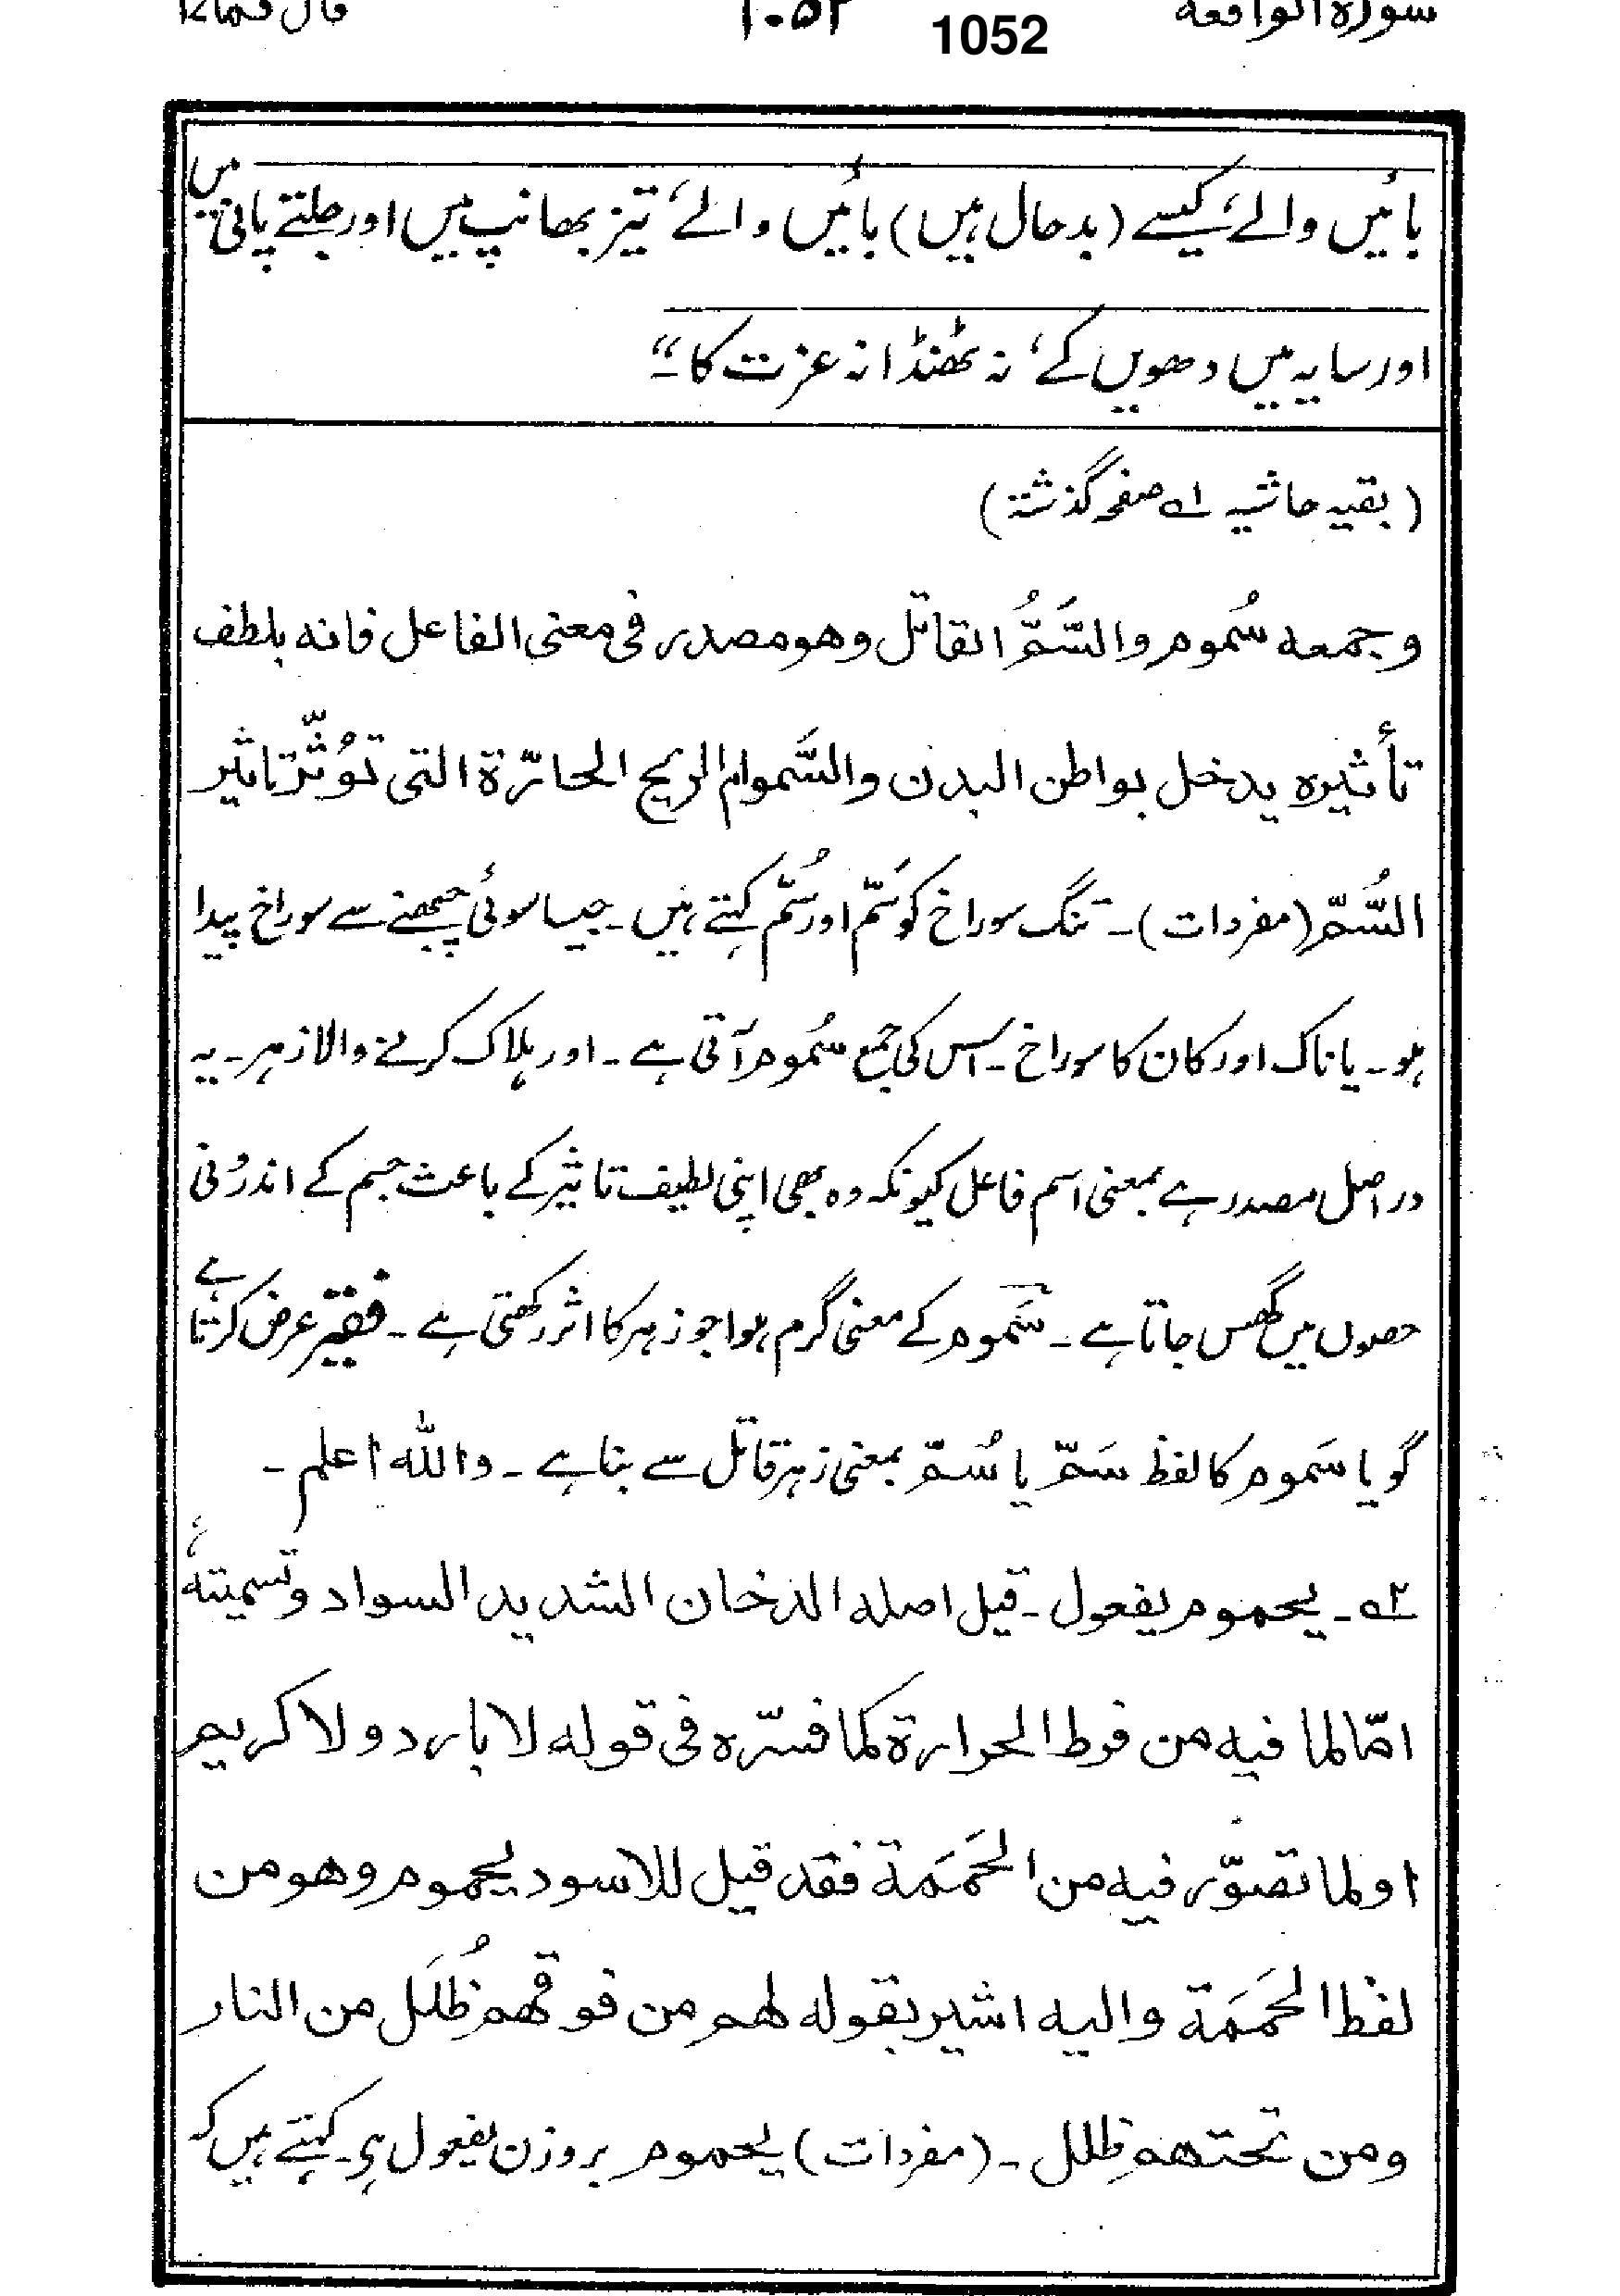 سورة الواقعة ١٠٥٢ 1052 قال فما ٢٧
بائیں والے، کیسے (بدحال ہیں) بائیں والے، تیز بھانپ میں اور جلتے پانی میں
اور سایہ میں دھویں کے، نہ ٹھنڈا نہ عزت کا۔"
(بقیہ حاشیہ ۱ صفحہ گذشتہ)
وجمعه سُموم والسَّمُّ القاتل وهو مصدر فی معنی الفاعل فانه بلطف
تأثیرہ یدخل بواطن البدن والسَّموم الریح الحارّة التی تُوثّر تاثیر
السُّمّ (مفردات)۔ تنگ سوراخ کو سَمّ اور سُمّ کہتے ہیں۔ جیسا سوئی چبھنے سے سوراخ پیدا
ہو۔ یا ناک اور کان کا سوراخ۔ اس کی جمع سُموم آتی ہے۔ اور ہلاک کرنے والا زہر۔ یہ
در اصل مصدر ہے بمعنی اسم فاعل کیونکہ وہ بھی اپنی لطیف تاثیر کے باعث جسم کے اندرُونی
حصوں میں گھس جاتا ہے۔ سَموم کے معنی گرم ہوا جو زہر کا اثر رکھتی ہے۔ فقیر عرض کرتا ہے
گویا سَموم کا لفظ سَمّ یا سُمّ بمعنی زہر قاتل سے بنا ہے۔ واللہ اعلم۔
۲۔ یحموم یفعول۔ قیل اصله الدخان الشدید السواد وتسمیتهُ
امّا لما فیه من فرط الحرارة کما فسّره فی قوله لا بارد ولا کریم
اولما تصوّر فیه من الحَمَمَة فقد قیل للاسود یحموم وهو من
لفظ الحَمَمَة والیه اشیر بقوله لهم من فوقهم ظُلَل من النار
ومن تحتهم ظلل۔ (مفردات) یحموم بروزن یفعول ہے۔ کہتے ہیں کہ